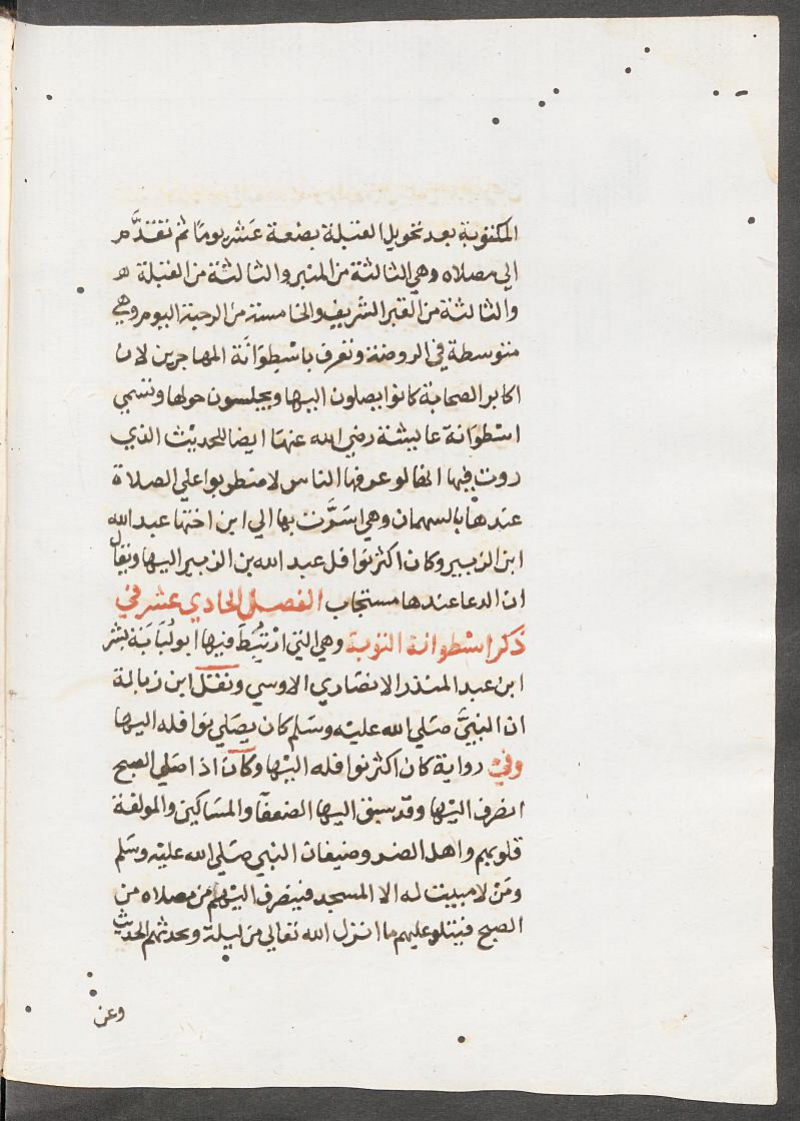 المكتوبة بعد تحويل القبلة بضعة عَشَر يومًا ثم تقدَّم
الي مصلاه وهي الثالثة من المنبر والثالثة من القبلة ه
والثالثة من القبر الشريف والخامسة من الرحبة اليوم وهي
متوسطة في الروضة وتعرف باسْطوَانَة المهاجرين لان
اكابر الصحابة كانوا يصلون اليها ويجلسون حولها وتسمي
اسْطوَانة عايشة رضي الله عنها ايضا للحديث الذي
روت فيها انها لو عرفها الناس لاضطربوا علي الصلاة
عندهَا بالسهمان وهي اسَرَّت بها الي ابن اختها عبد الله
ابن الزبير وكان اكثر نوافل عبد الله بن الزبير اليها ويقال
ان الدعا عندها مستجاب الفصل الحادي عشر في
ذكر اسْطوانة التوبة وهي التي ارْتبُط فيها ابو لُبَابَة بشر
ابن عبد المنذر الانصاري الاوسي ونقل ابن زبالة
ان النبيَّ صَلي الله عليه وسَلم كان يصَلي نوافله اليها
وفي رواية كان اكثر نوافله اليْها وكان اذا صَلي الصبح
انصرف اليْها وقد سبق اليها الضعفا والمسَاكين والمولفة
قلوبهم واهل الضر وضيفان النبي صَلي الله عليْه وسَلم
ومَنْ لا مبيت له الا المسجد فينصرف اليْهم من مصلاه من
الصبح فيتلو عليهم ما انزل الله تعالي من ليلته ويحدثهم الحديث
وعن